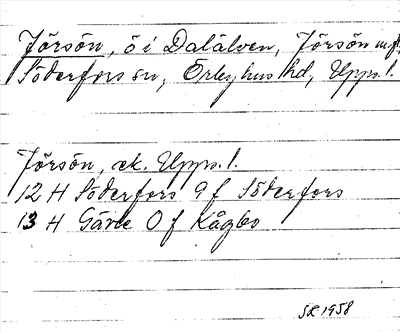 Jörsön, ö i Dalälven, Jörsön m.fl.
Söderfors sn, Örbyhus hd, Upps. l.
Jörsön, ek. Upps. l.
12 H Söderfors 9 f Söderfors
13 H Gävle 0 f Kågbo
SK 1958